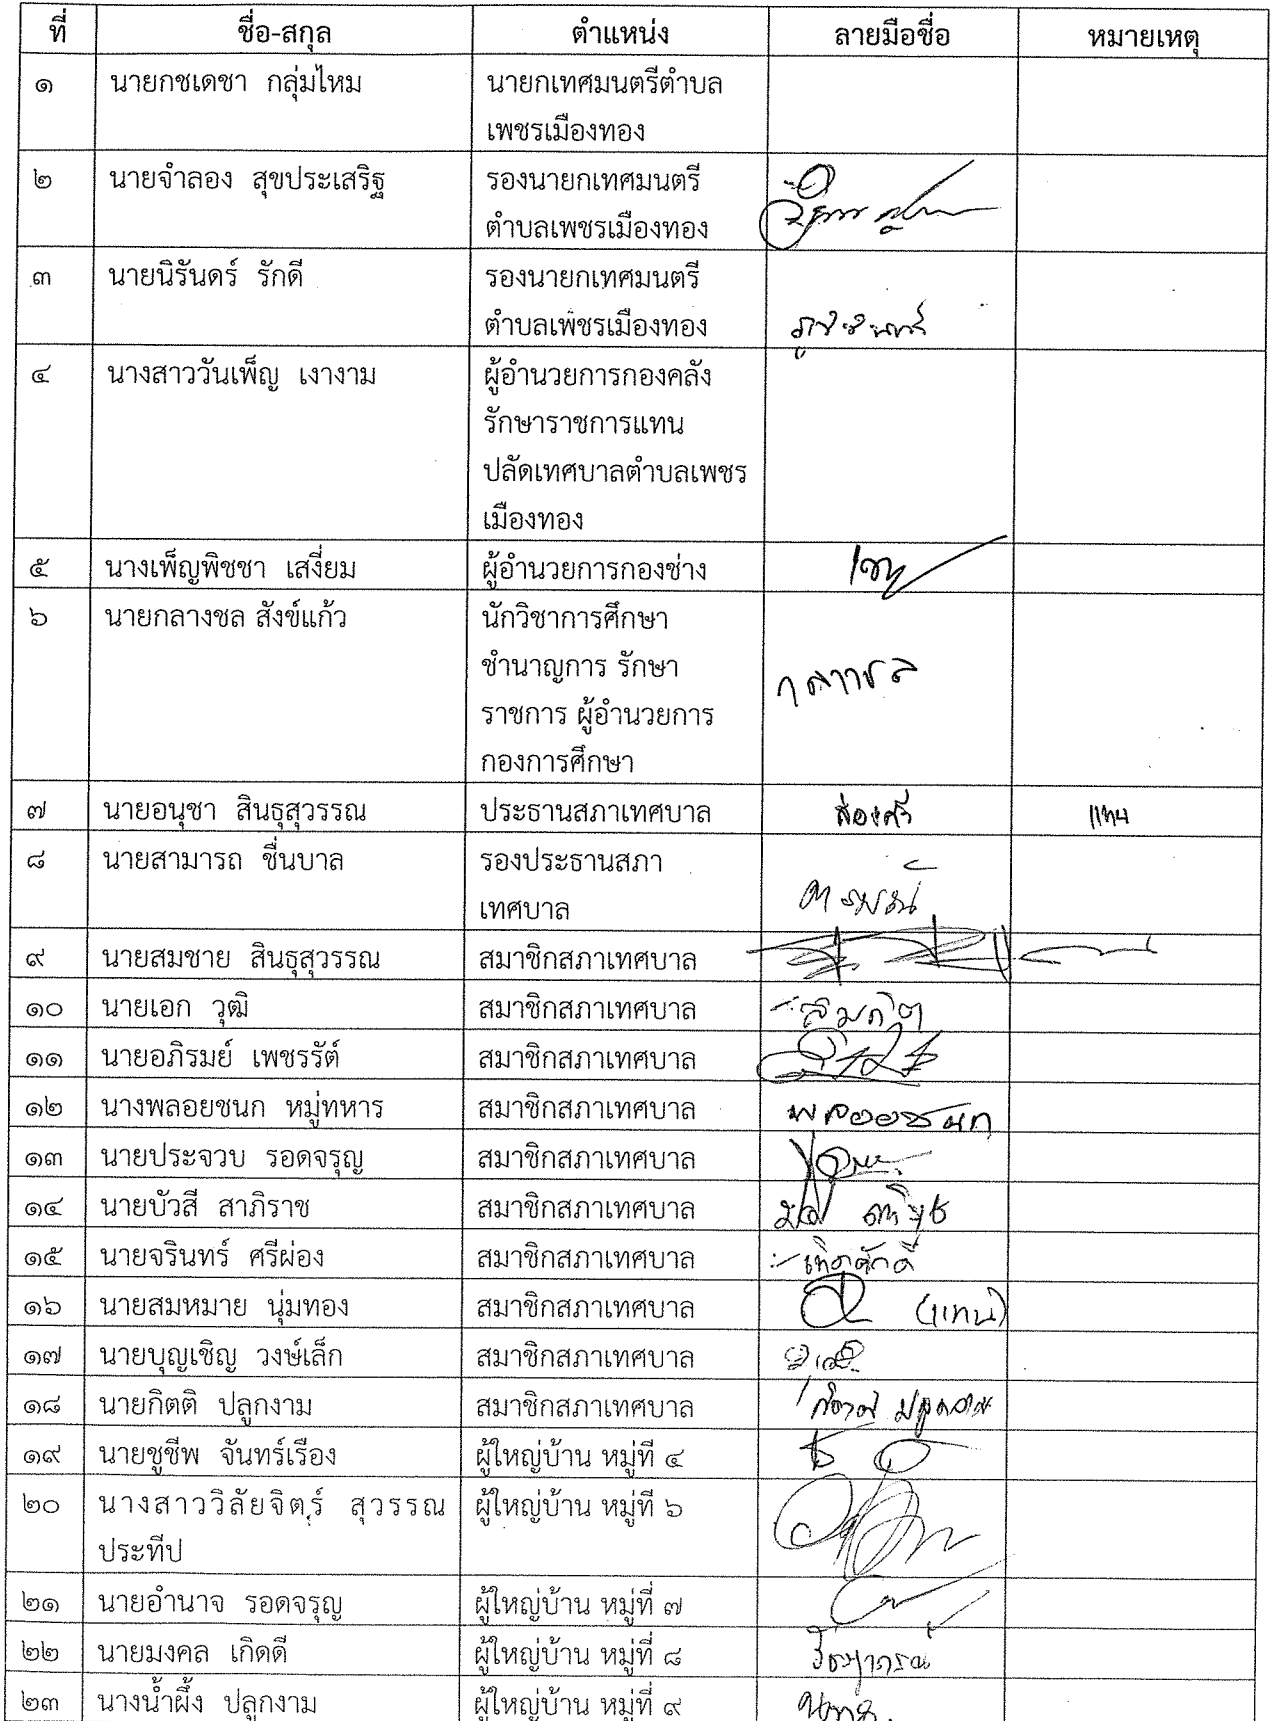 ที่ ชื่อ-สกุล ตำแหน่ง ลายมือชื่อ หมายเหตุ
๑ นายกชเดชา กลุ่มไหม นายกเทศมนตรีตำบล
เพชรเมืองทอง
๒ นายจำลอง สุขประเสริฐ รองนายกเทศมนตรี
ตำบลเพชรเมืองทอง
๓ นายนิรันดร์ รักดี รองนายกเทศมนตรี
ตำบลเพชรเมืองทอง
๔ นางสาววันเพ็ญ เงางาม ผู้อำนวยการกองคลัง
รักษาราชการแทน
ปลัดเทศบาลตำบลเพชร
เมืองทอง
๕ นางเพ็ญพิชชา เสงี่ยม ผู้อำนวยการกองช่าง
๖ นายกลางชล สังข์แก้ว นักวิชาการศึกษา
ชำนาญการ รักษา
ราชการ ผู้อำนวยการ
กองการศึกษา
๗ นายอนุชา สินธุสุวรรณ ประธานสภาเทศบาล แทน
๘ นายสามารถ ชื่นบาล รองประธานสภา
เทศบาล
๙ นายสมชาย สินธุสุวรรณ สมาชิกสภาเทศบาล
๑๐ นายเอก วุฒิ สมาชิกสภาเทศบาล
๑๑ นายอภิรมย์ เพชรรัต์ สมาชิกสภาเทศบาล
๑๒ นางพลอยชนก หมู่ทหาร สมาชิกสภาเทศบาล พลอยชนก
๑๓ นายประจวบ รอดจรุญ สมาชิกสภาเทศบาล
๑๔ นายบัวสี สาภิราช สมาชิกสภาเทศบาล
๑๕ นายจรินทร์ ศรีผ่อง สมาชิกสภาเทศบาล เทิดศักดิ์
๑๖ นายสมหมาย นุ่มทอง สมาชิกสภาเทศบาล (แทน)
๑๗ นายบุญเชิญ วงษ์เล็ก สมาชิกสภาเทศบาล
๑๘ นายกิตติ ปลูกงาม สมาชิกสภาเทศบาล
๑๙ นายชูชีพ จันทร์เรือง ผู้ใหญ่บ้าน หมู่ที่ ๔
๒๐ นางสาววิลัยจิตร์ สุวรรณ ผู้ใหญ่บ้าน หมู่ที่ ๖
ประทีป
๒๑ นายอำนาจ รอดจรุญ ผู้ใหญ่บ้าน หมู่ที่ ๗
๒๒ นายมงคล เกิดดี ผู้ใหญ่บ้าน หมู่ที่ ๘
๒๓ นางน้ำผึ้ง ปลูกงาม ผู้ใหญ่บ้าน หมู่ที่ ๙